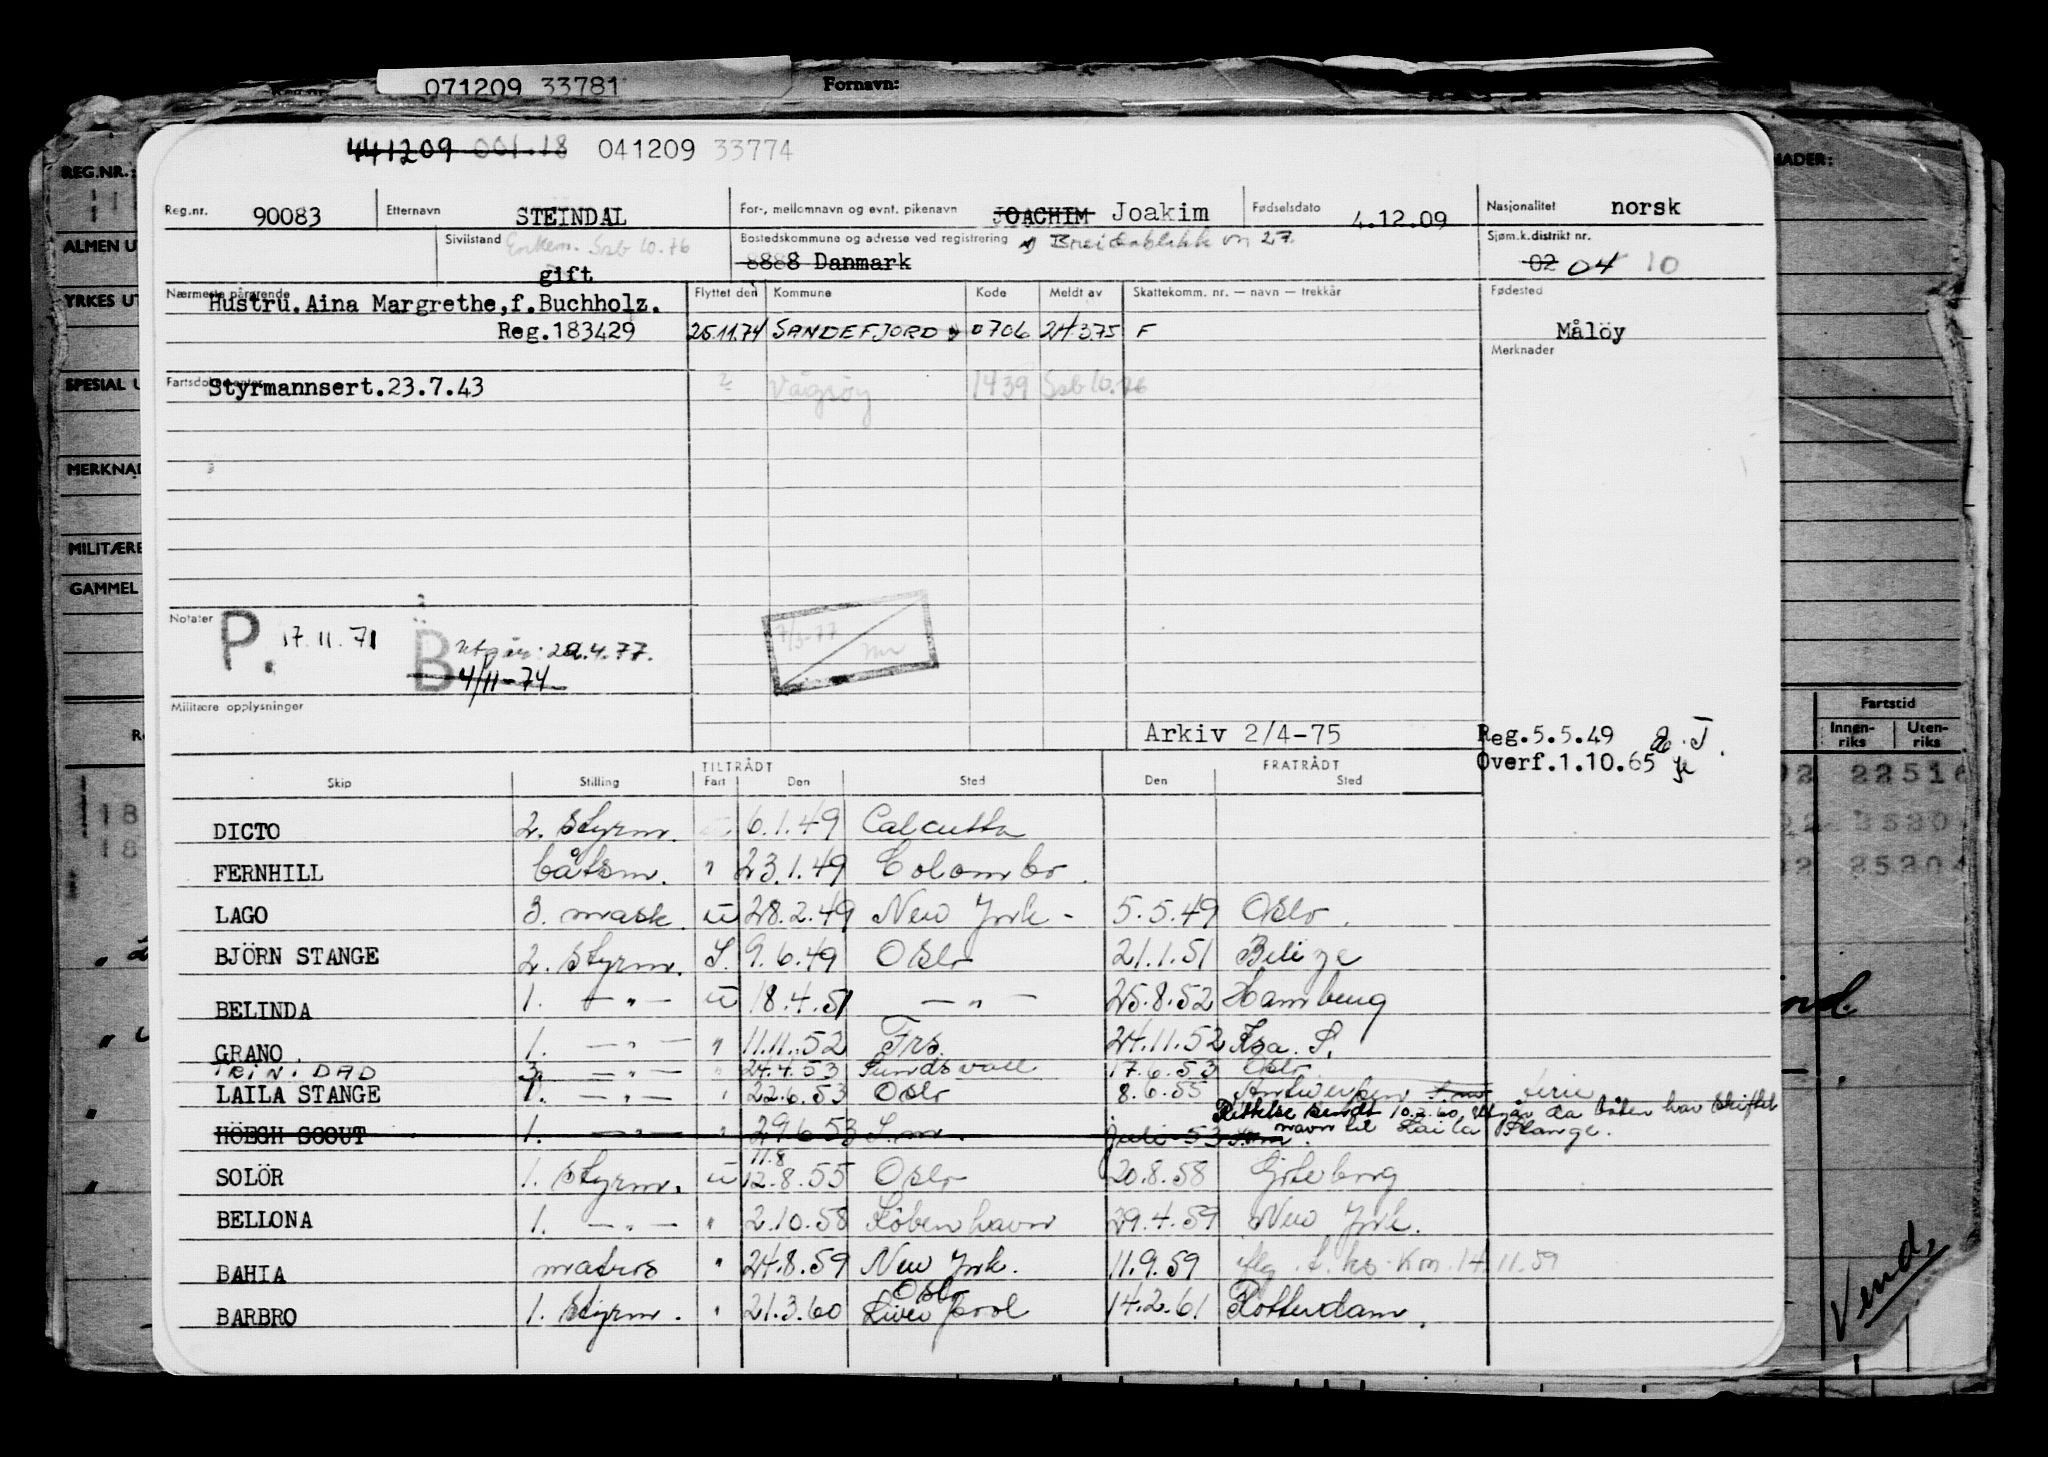 071209 33781 Fornavn:
441209 001.18 041209 33774
REG.NR.:
Reg.nr. 90083 Etternavn STEINDAL For-, mellomnavn og evnt. pikenavn JOACHIM Joakim Fødselsdato 4.12.09 Nasjonalitet norsk
ALMEN U
Sivilstand Enkem. Ssb 10.76 gift Bostedskommune og adresse ved registrering 8888 Danmark Sjøm.k.distrikt nr. 02 04 10
Nærmeste pårørende Flyttet den Kommune Kode Meldt av Skattekomm. nr. — navn — trekkår Fødested
YRKES UT
Hustru. Aina Margrethe, f. Buchholz.
Reg.183429 25.11.74 SANDEFJORD 0706 24.3.75 F Målöy
Merknader
SPESIAL U
Fartsdokumenter
Styrmannsert.23.7.43 ? Vågsøy 1439 Ssb 10.76
MERKNAD
MILITÆRE
GAMMEL
Notater
P. 17.11.71 B Utgår: 29.4.77.
4/11-74
7/3-77
Militære opplysninger
Fartstid
Innen-riks Uten-riks
Arkiv 2/4-75 Reg.5.5.49
Overf.1.10.65
TILTRÅDT FRATRÅDT
Skip Stilling Fart Den Sted Den Sted
DICTO 2. Styrm. u 6.1.49 Calcutta
FERNHILL båtsm. " 23.1.49 Colombo.
LAGO 3. mask. u 28.2.49 New York - 5.5.49 Oslo.
BJÖRN STANGE 2. Styrm. S. 9.6.49 Oslo 21.1.51 Belize
BELINDA 1. — " — u 18.4.51 — " — 25.8.52 Hamburg
GRANO. 1. — " — " 11.11.52 Frs. 24.11.52 Ksa. S.
TRINIDAD 3. — " — " 24.4.53 Sundsvall 17.6.53 Oslo
LAILA STANGE 1. — " — " 22.6.53 Oslo 8.6.55 Antwerpen S.m ferie
Rettelse sendt 10.2.60, Utgår da båten har skiftet
HÖEGH SCOUT 1. — " — " 29.6.53 S.m. juli 53 S.m. navn til Laila Stange.
11.8
SOLÖR 1. Styrm. u 12.8.55 Oslo 20.8.58 Göteborg
BELLONA 1. — " — " 2.10.58 København 29.4.59 New York.
BAHIA matros " 24.8.59 New York. 11.9.59 14.11.59
Oslo
BARBRO 1. Styrm. " 21.3.60 Liverpool 14.2.61 Rotterdam.
Vend.